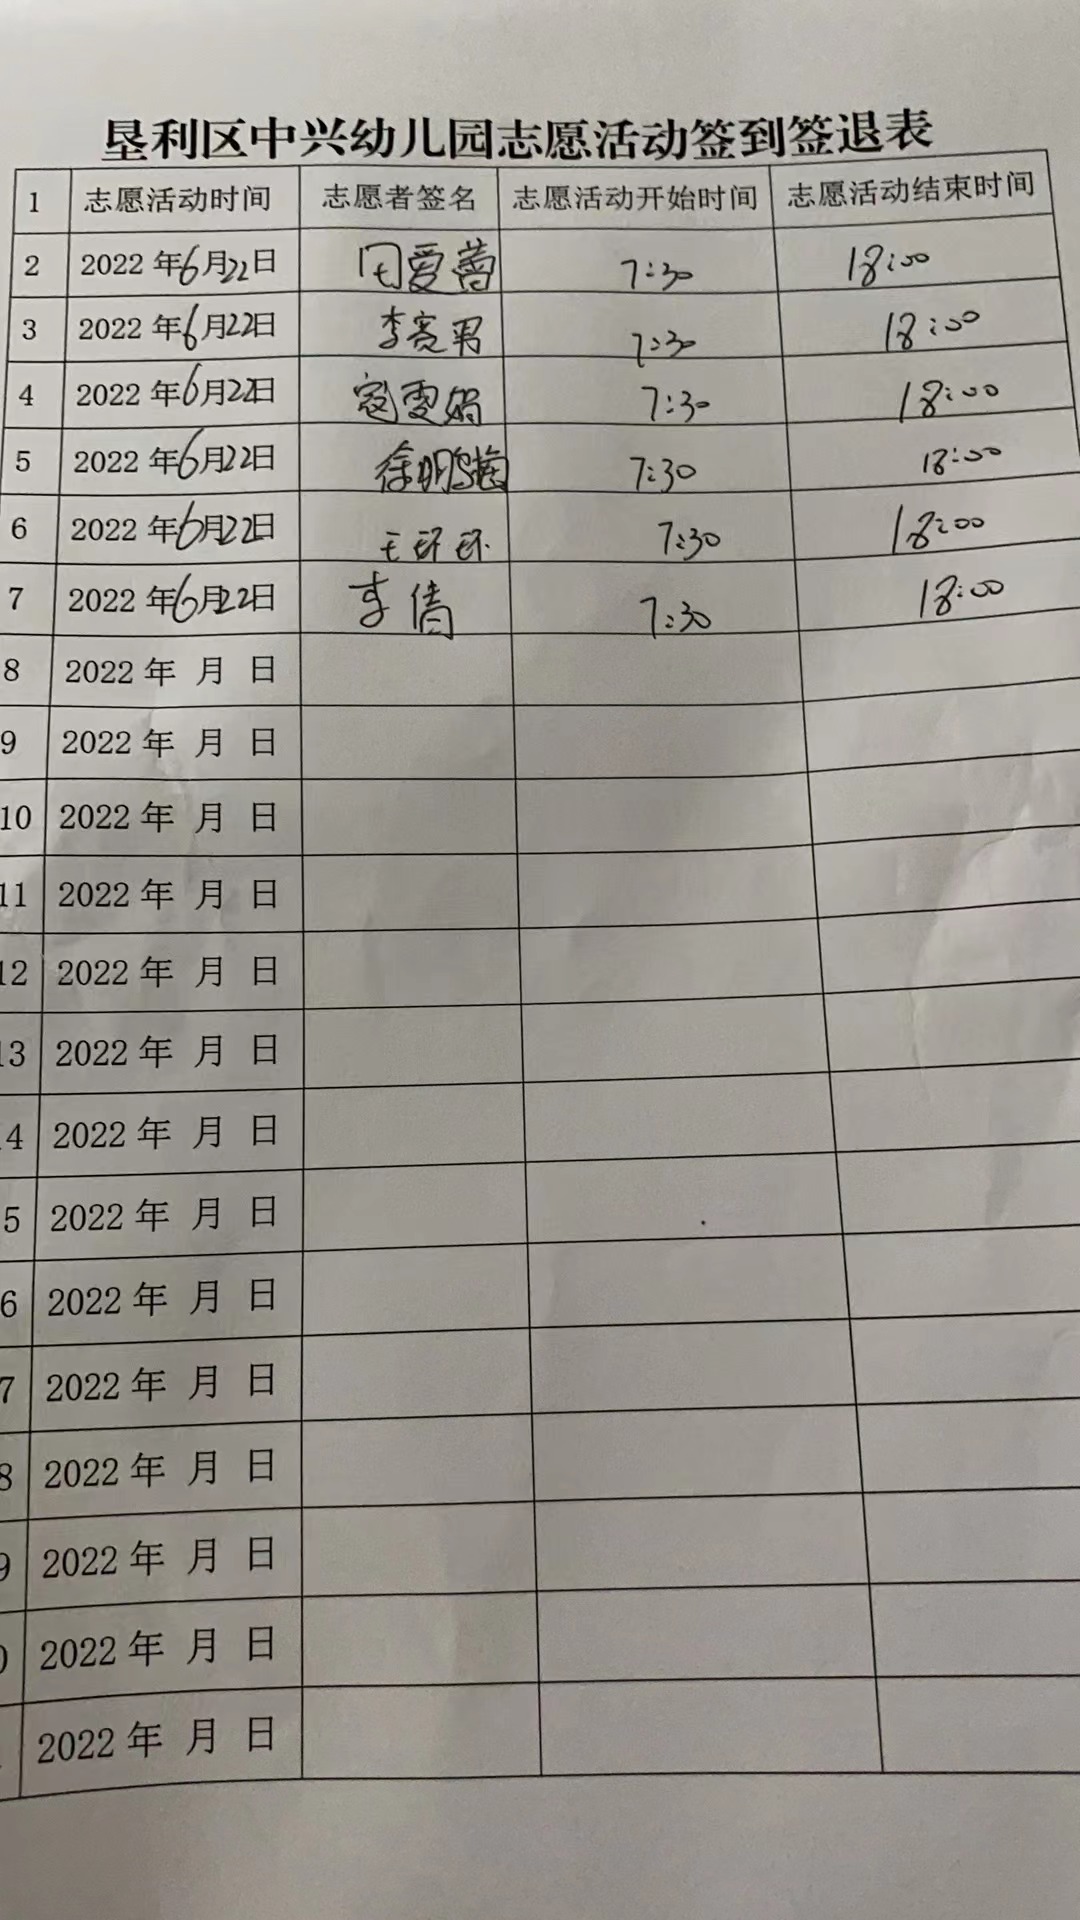 垦利区中兴幼儿园志愿活动签到签退表
1 志愿活动时间 志愿者签名 志愿活动开始时间 志愿活动结束时间
2 2022年6月22日 爱 7:30 18:00
3 2022年6月22日 李亮男 7:30 18:00
4 2022年6月22日 寇雯娟 7:30 18:00
5 2022年6月22日 徐明 7:30 18:00
6 2022年6月22日 王环环 7:30 18:00
7 2022年6月22日 李倩 7:30 18:00
8 2022年 月 日
9 2022年 月 日
10 2022年 月 日
11 2022年 月 日
12 2022年 月 日
13 2022年 月 日
4 2022年 月 日
5 2022年 月 日
6 2022年 月 日
7 2022年 月 日
8 2022年 月 日
9 2022年 月 日
0 2022年 月 日
2022年 月 日